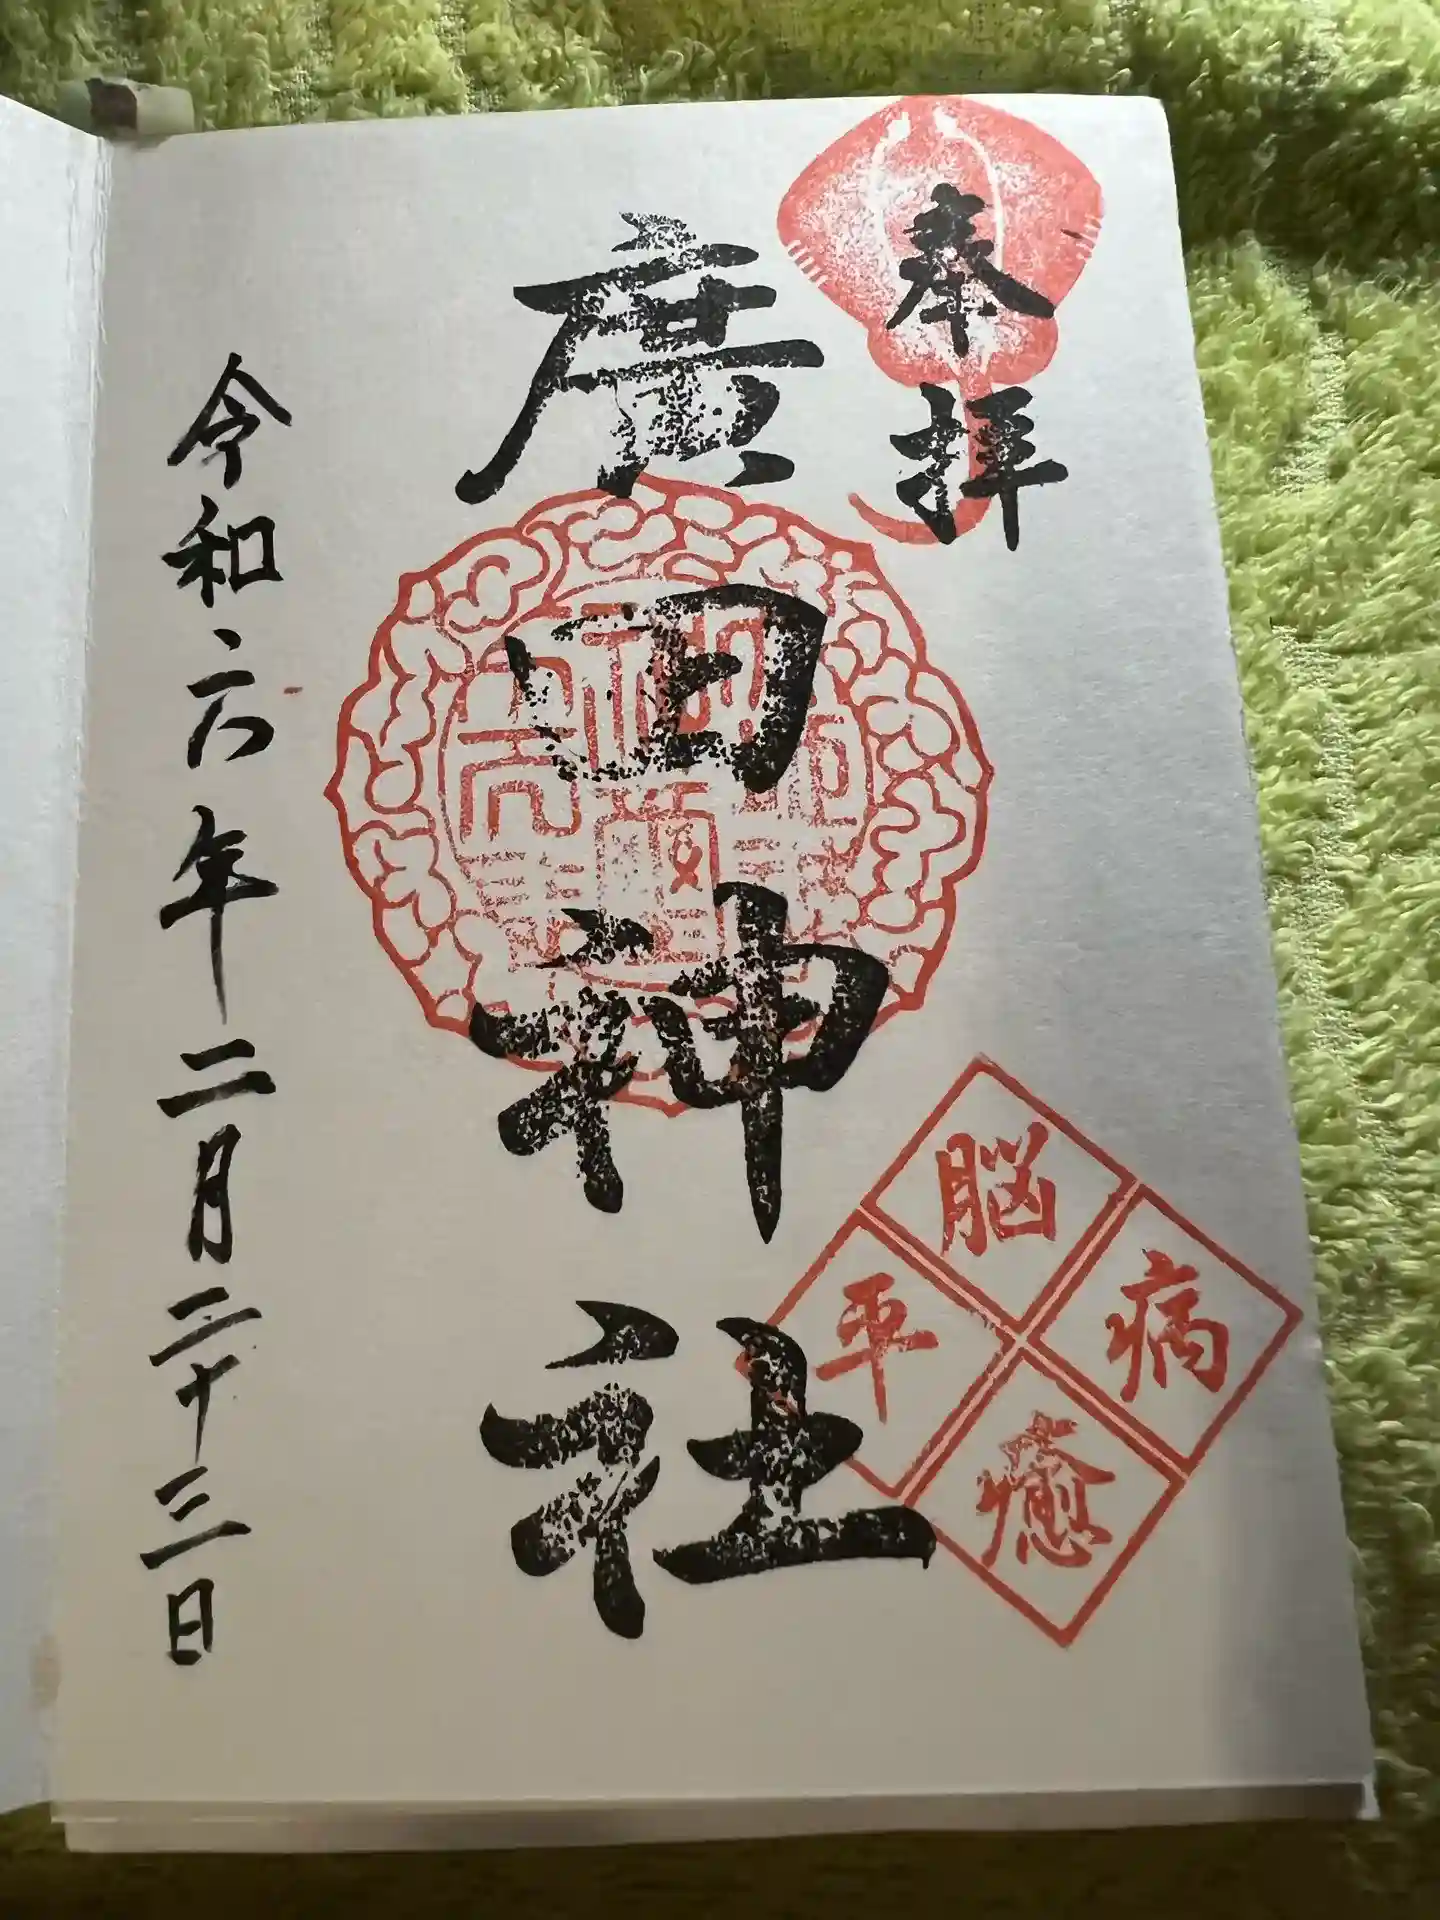 奉拝
廣田神社
脳病
平癒
令和六年二月二十三日